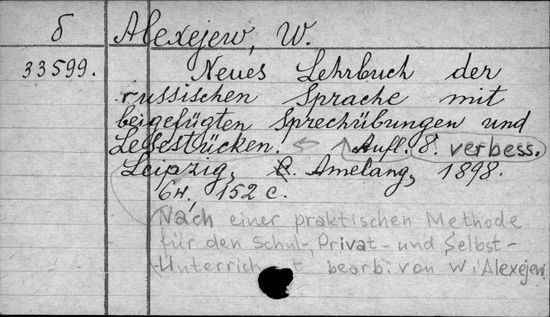 б Alexejew, W.
33599. Neues Lehrbuch der
russischen Sprache mit
beigefügten Sprechübungen und
Lesestücken. Aufl. 8. verbess.
Leipzig, C. Amelang, 1898.
6н, 152 с.
Nach einer praktischen Methode
für den Schul-, Privat- und Selbst-
Unterricht bearb. von W. Alexejew.